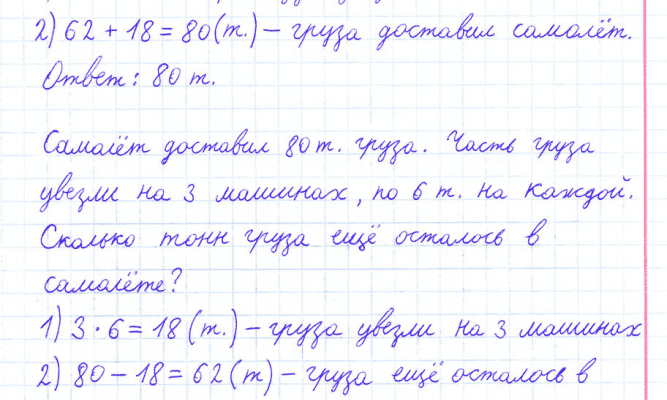 2) 62 + 18 = 80 (т.) – груза доставил самолёт.
Ответ: 80 т.
Самолёт доставил 80 т. груза. Часть груза
увезли на 3 машинах, по 6 т. на каждой.
Сколько тонн груза ещё осталось в
самолёте?
1) 3 · 6 = 18 (т.) – груза увезли на 3 машинах
2) 80 – 18 = 62 (т) – груза ещё осталось в